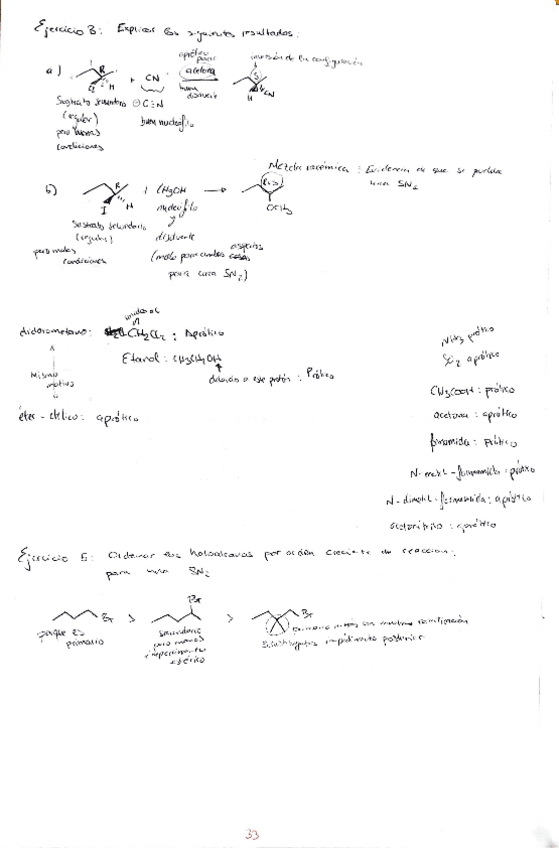 Ejercicio 3: Explicar los siguientes resultados:
a)
R
H
+ CN
⊖C≡N
aprótico
polar
acetona
buen
disolvente
inversión de la configuración
S
CN
H
Sustrato secundario
(regular)
pero buenas
condiciones
buen nucleófilo
b)
R
I
H
+ CH3OH
nucleófilo
y
disolvente
(malo para ambos aspectos
para una SN2)
OCH3
Mezcla racémica: Evidencia de que se pierde
una SN2
Sustrato secundario
(regular)
pero malas
condiciones
diclorometano: CH2Cl2: Aprótico
Etanol: CH3CH2OH
debido a este protón: Prótico
Mismo
motivo
éter-etílico: aprótico
NH3 prótico
SO2 aprótico
CH3COOH: prótico
acetona: aprótico
formamida: Prótico
N-metil-formamida: prótico
N-dimetil-formamida: aprótico
acetonitrilo: aprótico
Ejercicio 5: Ordenar los haloalcanos por orden creciente de reacción:
para una SN2
Br > Br > Br
porque es
primario
secundario
pero menos
impedimento
estérico
impedimento posterior
33